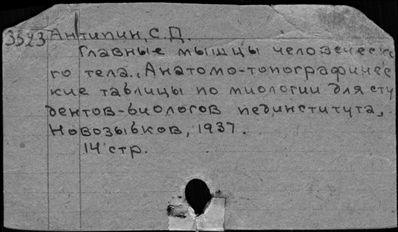 3523 Антипин, С.Д.
Главные мышцы человеческо
го тела. Анатомо-топографичес
кие таблицы по миологии для сту
дентов-биологов пединститута,
Новозыбков, 1937.
14 стр.